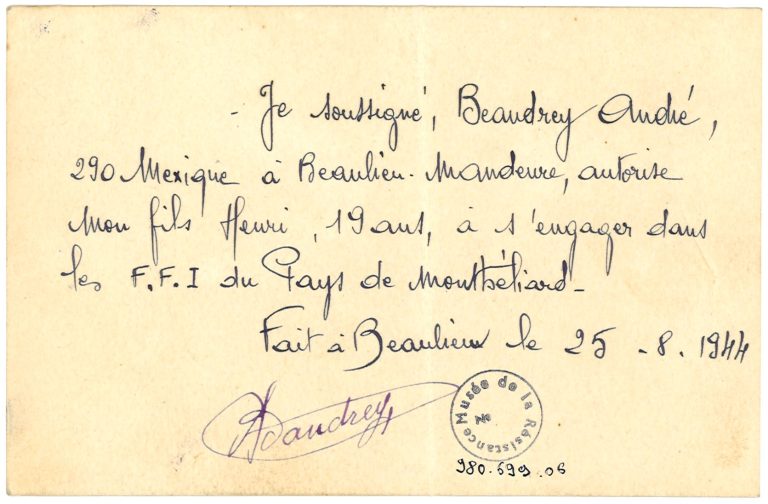 - Je soussigné, Beaudrey André,
290 Mexique à Beaulieu-Mandeure, autorise
mon fils Henri, 19 ans, à s'engager dans
les F.F.I du Pays de Montbéliard-
Fait à Beaulieu le 25-8.1944
ABeaudrey
Musée de la Résistance
No
980.699.06